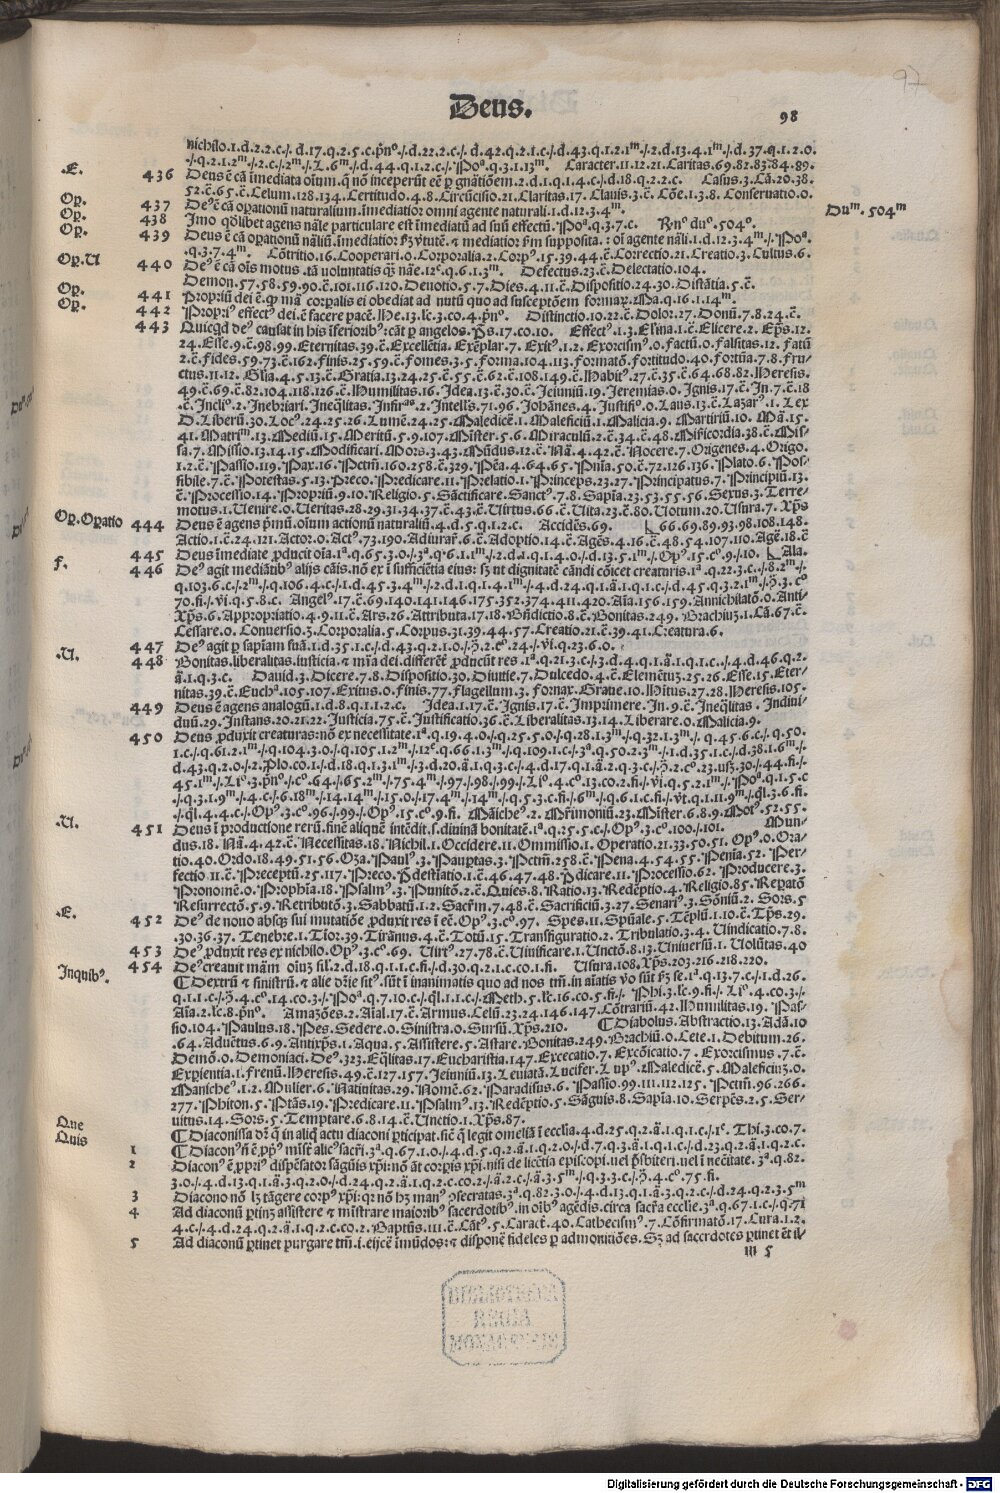 97
Deus.
98
nichilo.1.d.2.2.c./.d.17.q.2.5.c.p̄nº./.d.22.2.c./.d.42.q.2.1.c./.d.43.q.1.2.1ᵐ./.2.d.13.4.1ᵐ./.d.37.q.1.2.0.
./.q.2.1.2ᵐ./.2.c./.2ᵐ./.L.6ᵐ./.d.44.q.1.2.c./.Poª.q.3.1.13ᵐ. Caracter.11.12.21.Caritas.69.82.83.84.89.
.E. 436 Deus ē cā īmediata oīum.q̄ nō inceperūt eē ꝑ gnātiōem.2.d.1.q.1.4.c./.d.18.q.2.2.c. Casus.3.Cā.20.38.
52.c̄.65.c̄.Celum.128.134.Certitudo.4.8.Circūcisio.21.Claritas.17.Clauis.3.c̄.Cōe.1.3.8.Conseruatio.0.
Oꝑ. 437 Deꝰ ē cā oꝑationū naturalium.īmediatioꝛ omni agente naturali.1.d.12.3.4ᵐ. Duᵐ.504ᵐ
Oꝑ. 438 Imo qd̄libet agens nāle particulare est īmediatū ad suū effectū.Poª.q.3.7.c. Rn̄º duº.504º.
Oꝑ. 439 Deus ē cā oꝑationū nāliū.īmediatioꝛ ẜm v̓tutē.⁊ mediatioꝛ ẜm supposita.: oī agente nāli.1.d.12.3.4ᵐ./.Poª.
.q.3.7.4ᵐ. Cōtritio.16.Cooperari.0.Corporalia.2.Corpꝰ.15.39.44.c̄.Correctio.21.Creatio.3.Cultus.6.
Oꝑ.U 440 Deꝰ ē cā oīs motus.tā voluntatis qͣꝫ nāe.12ᵉ.q.6.1.3ᵐ. Defectus.23.c̄.Delectatio.104.
Demon.57.58.59.90.c̄.101.116.120.Deuotio.5.7.Dies.4.11.c̄.Dispositio.24.30.Distātia.5.c̄.
Oꝑ. 441 Propriū dei ē.ꝙ mā corꝑalis ei obediat ad nutū quo ad susceptōem formaꝝ.Ma.q.16.1.14ᵐ.
Oꝑ. 442 Propriꝰ effectꝰ dei.ē facere pacē.He.13.lc̄.3.co.4.p̄nº. Distinctio.10.22.c̄.Dolor.27.Donū.7.8.24.c̄.
443 Quicqd̄ deꝰ causat in his īferioribꝰ:cāt ꝑ angelos.Ps.17.co.10. Effectꝰ.1.3.Elīna.1.c̄.Elicere.2.Epūs.12.
24.Esse.9.c̄.98.99.Eternitas.39.c̄.Excellētia.Exēplar.7.Exitꝰ.1.2.Exorcismꝰ.0.factū.0.falsitas.12.fatū
2.c̄.fides.59.73.c̄.162.finis.25.59.c̄.fomes.3.5.forma.104.113.formatō.fortitudo.40.fortūa.7.8.fru/
ctus.11.12.Glīa.4.5.13.c̄.Gratia.13.24.25.c̄.55.c̄.62.c̄.108.149.c̄.Habitꝰ.27.c̄.35.c̄.64.68.82.Heresis.
49.c̄.69.c̄.82.104.118.126.c̄.Humilitas.16.Idea.13.c̄.30.c̄.Ieiuniū.19.Ieremias.0.Ignis.17.c̄.In.7.c̄.18
.c̄.Incliº.2.Inebriari.Ineq̄litas.Infirᵃˢ.2.Intells̄.71.96.Johānes.4.Justifiº.0.Laus.13.c̄.Lazarꝰ.1.Lex
D.Liberū.30.Locꝰ.24.25.26.Lumē.24.25.Maledicē.1.Maleficiū.1.Malicia.9.Martiriū.10.Mā.15.
41.Matrīm.13.Mediū.15.Meritū.5.9.107.Mīster.5.6.Miraculū.2.c̄.34.c̄.48.Misīcordia.38.c̄.Mis/
sa.7.Missio.13.14.15.Modificari.Mors.3.43.Mūdus.12.c̄.Nā.4.42.c̄.Nocere.7.Origenes.4.Origo.
1.2.c̄.Passio.119.Pax.16.Pctm̄.160.258.c̄.329.Pēa.4.64.65.Pnīa.50.c̄.72.126.136.Plato.6.Pos/
sibile.7.c̄.Potestas.5.13.Preco.Predicare.11.Prelatio.1.Princeps.23.27.Principatus.7.Principiū.13.
c̄.Processio.14.Propriū.9.10.Religio.5.Sāctificare.Sanctꝰ.7.8.Sapīa.23.53.55.56.Sexus.3.Terre/
motus.1.Uenire.0.Ueritas.28.29.31.34.37.c̄.43.c̄.Uirtus.66.c̄.Uita.23.c̄.80.Uotum.20.Usura.7.Xpūs.
Oꝑ.Oꝑatio 444 Deus ē agens pͥmū.oīum actionū naturaliū.4.d.5.q.1.2.c. Accidēs.69. 66.69.89.93.98.108.148.
Actio.1.c̄.24.121.Actor.0.Actꝰ.73.190.Adiurar̄.6.c̄.Adoptio.14.c̄.Agēs.4.16.c̄.48.54.107.110.Agē.18.c̄
445 Deus īmediate ꝓducit oīa.1ª.q.65.3.0./.3ª.q.6.1.1ᵐ./.2.d.1.q.1.4.0./.d.13.5.1ᵐ./.Opꝰ.15.cº.9./.10. Ala.
f. 446 Deꝰ agit mediātibꝰ alijs cāis.nō ex ī sufficiētia eius: sꝫ ut dignitatē cāndi cōicet creaturis.1ª.q.22.3.c./.8.2ᵐ./.
q.103.6.c./.2ᵐ./.q.106.4.c./.1.d.45.3.4ᵐ./.2.d.1.q.1.4.1ᵐ./.4.d.24.q.1.ā.1.q.1.c./.d.45.q.3.2.1ᵐ./.ꝯ̄.3.cº
70.fi./.vi.q.5.8.c. Angelꝰ.17.c̄.69.140.141.146.175.352.374.411.420.Aīa.156.159.Annichilatō.0.Anti/
Xpūs.6.Appropriatio.4.9.11.c̄.Ars.26.Attributa.17.18.Bn̄dictio.8.c̄.Bonitas.249.Brachiuꝫ.1.Cā.67.c̄.
Cessare.0.Conuersio.3.Corporalia.5.Corpus.31.39.44.57.Creatio.21.c̄.39.41.Creatura.6.
.U. 447 Deꝰ agit ꝑ sapīam suā.1.d.35.1.c./.d.43.q.2.1.0./.ꝯ̄.2.cº.24./.vi.q.23.6.0.
448 Bonitas.liberalitas.iusticia.⁊ mīa dei.differēt̄ ꝓducūt res.1ª.q.21.3.c./.3.d.4.q.1.ā.1.q.1.c../.4.d.46.q.2.
ā.1.q.3.c. Dauid.3.Dicere.7.8.Dispositio.30.Diuitie.7.Dulcedo.4.c̄.Elemētuꝫ.25.26.Esse.15.Eter/
nitas.39.c̄.Euchª.105.107.Exitus.0.finis.77.flagellum.3.fornax.Gratie.10.Hītus.27.28.Heresis.105.
449 Deus ē agens analogū.1.d.8.q.1.1.2.c. Idea.1.17.c̄.Ignis.17.c̄.Imprimere.In.9.c̄.Ineq̄litas.Indiui/
duū.29.Instans.20.21.22.Justicia.75.c̄.Justificatio.36.c̄.Liberalitas.13.14.Liberare.0.Malicia.9.
450 Deus ꝓduxit creaturas:nō ex necessitate.1ª.q.19.4.0./.q.25.5.0./.q.28.1.3ᵐ./.q.32.1.3ᵐ./.q.45.6.c./.q.50.
1.c./.q.61.2.1ᵐ./.q.104.3.0./.q.105.1.2ᵐ./.12ᵉ.q.66.1.3ᵐ./.q.109.1.c./.3ª.q.50.2.3ᵐ./.1.d.35.1.c./.d.38.1.6ᵐ./.
d.43.q.2.0./.2.Plo.co.1./.d.18.q.1.3.1ᵐ./.3.d.20.ā.1.q.3.c./.4.d.17.q.1.ā.2.q.3.c./.ꝯ̄.2.cº.23.usꝫ.30./.44.fi./.
45.1ᵐ./.Liº.3.p̄nº./.cº.64./.65.2ᵐ./.75.4ᵐ./.97./.98./.99./.Liº.4.cº.13.co.2.fi./.vi.q.5.2.1ᵐ./.Poª.q.1.5.c
./.q.3.1.9ᵐ./.4.c./.6.18ᵐ./.14.14ᵐ./.15.0./.17.4ᵐ./.14ᵐ./.q.5.3.c.fi./.6ᵐ./.q.6.1.c.fi./.vt.q.1.11.9ᵐ./.q̄l.3.6.fi.
./.q̄l.4.4.c./.Opꝰ.3.cº.96./.99./.Opꝰ.15.cº.9.fi. Māicheꝰ.2.Mr̄imoniū.23.Mīster.6.8.9.Motꝰ.52.55.
.U. 451 Deus ī productione rerū.finē aliquē intēdit.s.diuinā bonitatē.1ª.q.25.5.c./.Opꝰ.3.cº.100./.101. Mun/
dus.18.Nā.4.42.c̄.Necessitas.18.Nichil.1.Occidere.11.Ommissio.1.Operatio.21.33.50.51.Opꝰ.0.Ora/
tio.40.Ordo.18.49.51.56.Oza.Paulꝰ.3.Pauꝑtas.3.Pctm̄.258.c̄.Pena.4.54.55.Penīa.52.Per/
fectio.11.c̄.Preceptū.25.117.Preco.P̄destīatio.1.c̄.46.47.48.P̄dicare.11.Processio.62.Producere.3.
Pronomē.0.Prophīa.18.Psalmꝰ.3.Punitō.2.c̄.Quies.8.Ratio.13.Redēptio.4.Religio.85.Reꝑatō
Resurrectō.5.9.Retributō.3.Sabbatū.1.2.Sacr̄m.7.48.c̄.Sacrificiū.3.27.Senariꝰ.3.Sōniū.2.Sors.5
.E. 452 Deꝰ de nouo absqꝫ sui mutatiōe ꝓduxit res ī eē.Opꝰ.3.cº.97. Spes.11.Spūale.5.Tēplū.1.10.c̄.Tp̄s.29.
.30.36.37.Tenebre.1.Tīor.39.Tirānus.4.c̄.Totū.15.Transfiguratio.2.Tribulatio.3.4.Uindicatio.7.8.
453 Deꝰ ꝓduxit res ex nichilo.Opꝰ.3.cº.69. Uirtꝰ.27.78.c̄.Uiuificare.1.Unctō.8.13.Uniuersū.1.Uolūtas.40
Inquibꝰ. 454 Deꝰ creauit mām oīuꝫ sil̄.2.d.18.q.1.1.c.fi./.d.30.q.2.1.c.co.1.fi. Usura.108.Xpūs.203.216.218.220.
¶ Dextrū ⁊ sinistrū.⁊ alie dr̄ie sitꝰ.sūt ī inanimatis quo ad nos tm̄.in aīatis vo sūt ẜm se.1ª.q.13.7.c./.1.d.26.
q.1.1.c./.ꝯ̄.4.cº.14.co.3./.Poª.q.7.10.c./.q̄l.1.1.c./.Meth.5.lc̄.16.co.5.fi./. Phi.3.lc̄.9.fi./.Liº.4.co.3./.
Aīa.2.lc̄.8.p̄nº. Amazōes.2.Aīal.17.c̄.Armus.Celū.23.24.146.147.Cōtrariū.42.Humilitas.19.Pas/
sio.104.Paulus.18.Pes.Sedere.0.Sinistra.0.Sursū.Xpūs.210. ¶ Diabolus.Abstractio.13.Adā.10
.64.Aduētus.6.9.Antixpūs.1.Aqua.5.Assistere.5.Astare.Bonitas.249.Brachiū.0.Cete.1.Debitum.26.
Demō.0.Demoniaci.Deꝰ.323.Eq̄litas.17.Eucharistia.147.Excecatio.7.Excōicatio.7.Exorcismus.7.c̄.
Exꝑientia.1.frenū.Heresis.49.c̄.127.157.Jeiuniū.13.Leuiatā.Lucifer.Lupꝰ.Maledicē.5.Maleficiuꝫ.0.
Manicheꝰ.1.2.Mulier.6.Natiuitas.29.Nomē.62.Paradisus.6.Passio.99.111.112.125.Pctm̄.96.266.
277.Phiton.5.Ptās.19.Predicare.11.Psalmꝰ.13.Redēptio.5.Sāguis.8.Sapīa.10.Serpēs.2.5.Ser/
uitus.14.Sors.5.Temptare.6.8.14.c̄.Unctio.1.Xpūs.87.
Que ¶ Diaconissa dr̄ q̄ in aliq̄ actu diaconi ꝑticipat.sic̄ q̄ legit omeliā ī ecclīa.4.d.25.q.2.ā.1.q.1.c./.1ᵉ.Thi.3.co.7.
Quis 1 ¶ Diaconꝰ n̄ ē ꝓpͥꝰ mīst̄ alicꝰ sacr̄i.3ª.q.67.1.0./.4.d.5.q.2.ā.1.q.2.0./.d.7.q.3.ā.1.q.1.c./.d.23.q.2.ā.1.q.2.c.
2 Diaconꝰ ē ꝓpͥ̄ dispēsator sāgūis xp̄i:nō āt corꝑis xp̄i.nisi de licētia episcopi.uel p̄sbiteri.uel ī nec̄itate.3ª.q.82.
3.0./.4.d.13.q.1.ā.3.q.2.0./.d.24.q.2.ā.1.q.2.c.co.2./.ā.2.c./.ā.3.5ᵐ./.q.3.3.c./.ꝯ̄.4.cº.75.fi.
3 Diacono nō lꝫ tāgere corpꝰ xp̄i:qꝛ nō hꝫ manꝰ ꝯsecratas.3ª.q.82.3.0./.4.d.13.q.1.ā.3.q.2.c./.d.24.q.2.3.5ᵐ
4 Ad diaconū ꝑtinꝫ assistere ⁊ mīstrare maioribꝰ sacerdotibꝰ.in oībꝰ agēdis.circa sacr̄a ecclīe.3ª.q.67.1.c./.q.71
4.c./.4.d.24.q.2.ā.1.q.2.c.co.2.Baptūs.111.c̄.Cātꝰ.5.Caract̄.40.Cathecismꝰ.7.Cōfirmatō.17.Cura.1.2.
5 Ad diaconū ꝑtinet purgare tm̄.i.eijcē īmūdos:⁊ disponē fideles ꝑ admonitiōes.Sꝫ ad sacerdotes ꝑtinet ēt il/
m 5
BIBLIOTHECA
REGIA
MONACENSIS
Digitalisierung gefördert durch die Deutsche Forschungsgemeinschaft - DFG